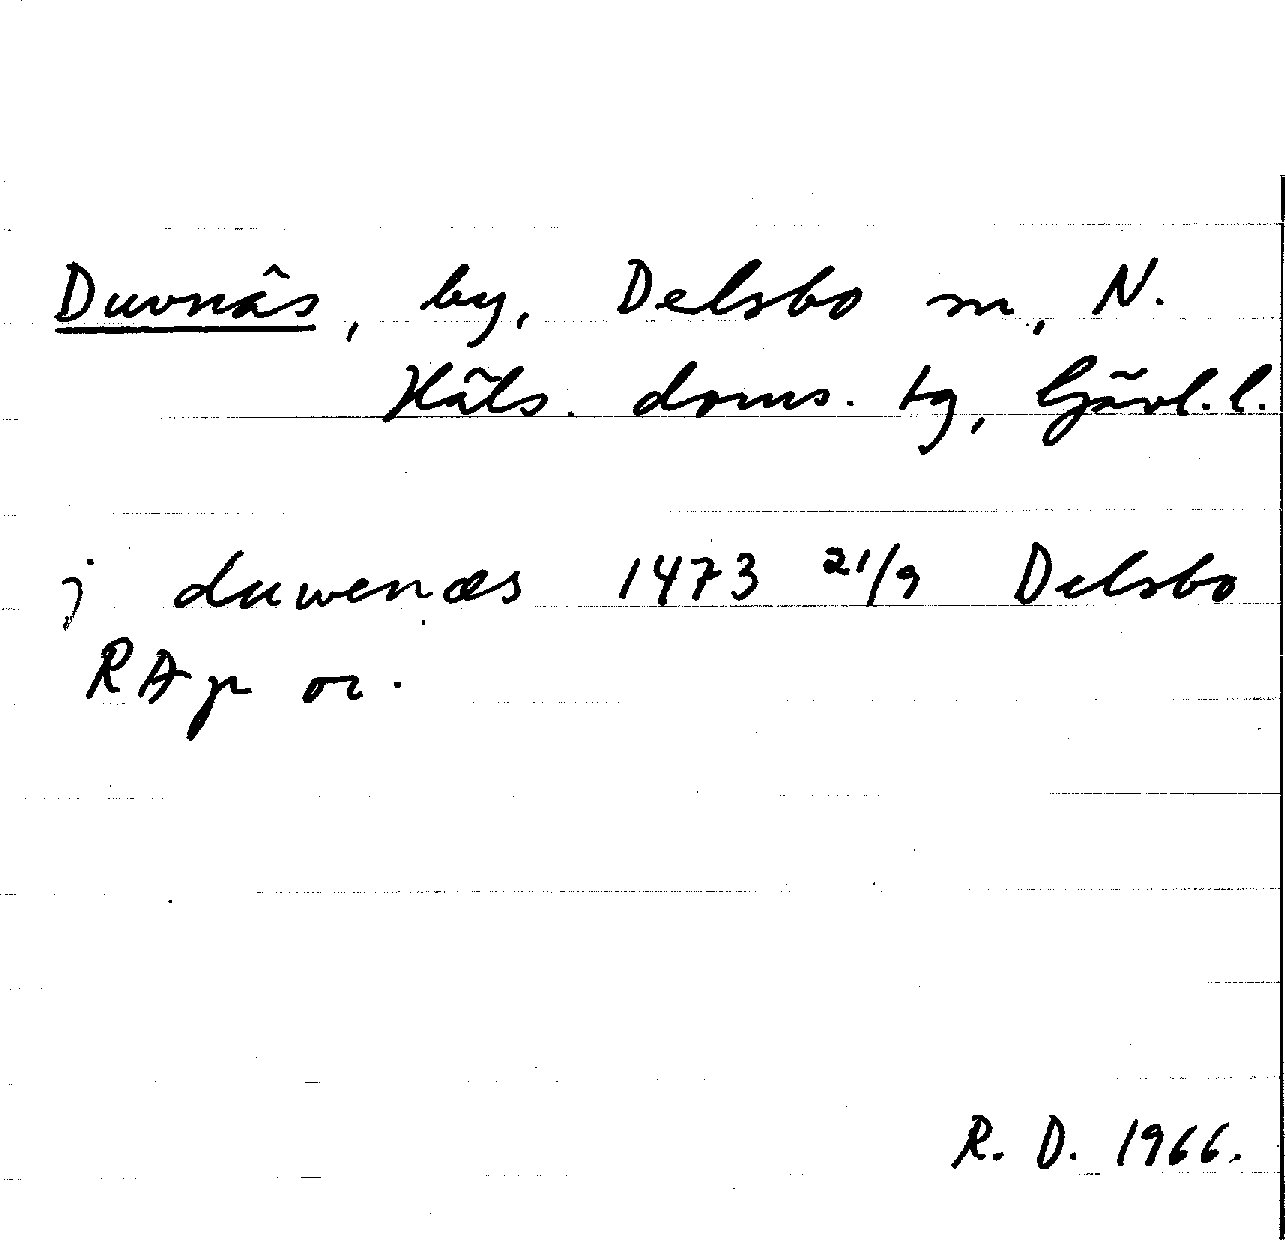 Duvnäs, by, Delsbo sn, N.
Häls. doms. tg, Gävl. l.
j duwenæs 1473 21/9 Delsbo
RAp or.
R. D. 1966.